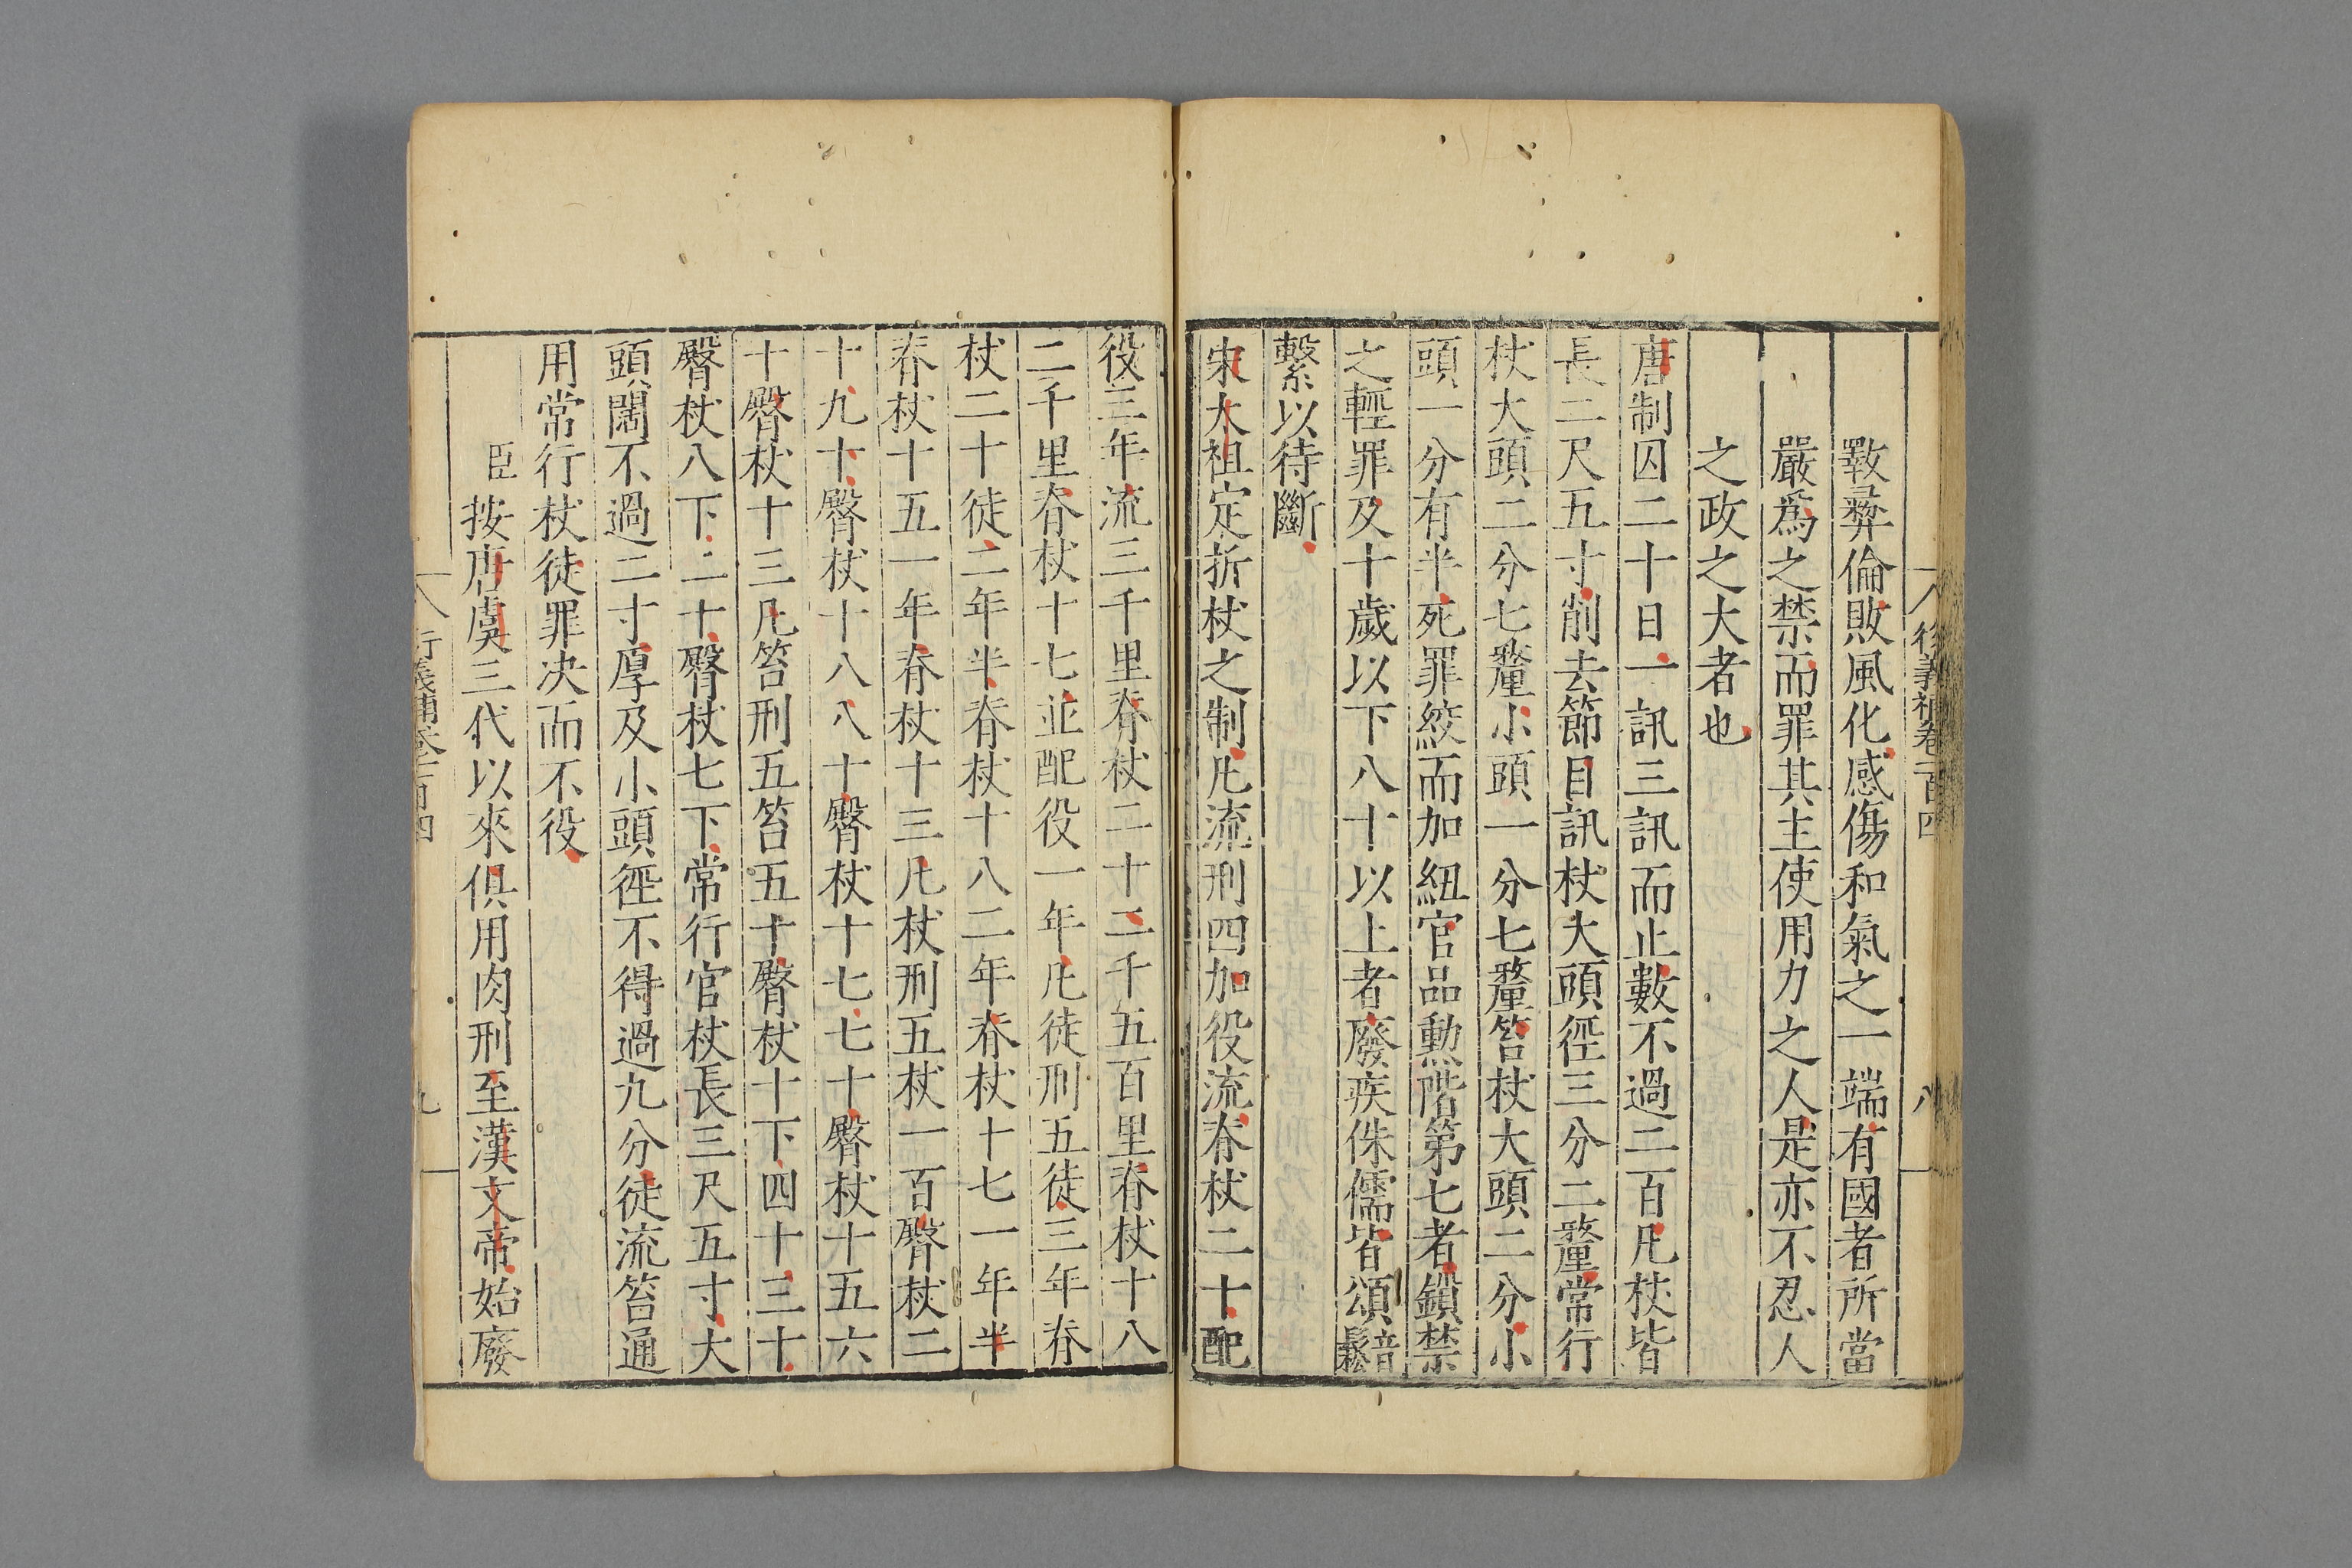 斁彝倫敗風化感傷和氣之一端有國者所當
嚴爲之禁而罪其主使用力之人是亦不忍人
之政之大者也
唐制囚二十日一訊三訊而止數不過二百凡杖皆
長二尺五寸削去節目訊杖大頭徑三分二釐常行
杖大頭二分七釐小頭一分七釐笞杖大頭二分小
頭一分有半死罪絞而加紐官品勳階第七者鎖禁
之輕罪及十歲以下八十以上者廢疾侏儒皆頌音鬆
繫以待斷
宋太祖定折杖之制凡流刑四加役流脊杖二十配
役三年流三千里脊杖二十二千五百里脊杖十八
二千里脊杖十七並配役一年凡徒刑五徒三年脊
杖二十徒二年半脊杖十八二年脊杖十七一年半
脊杖十五一年脊杖十三凡杖刑五杖一百臀杖二
十九十臀杖十八八十臀杖十七七十臀杖十五六
十臀杖十三凡笞刑五笞五十臀杖十下四十三十
臀杖八下二十臀杖七下常行官杖長三尺五寸大
頭闊不過二寸厚及小頭徑不得過九分徒流笞通
用常行杖徒罪決而不役
臣按唐虞三代以來俱用肉刑至漢文帝始廢
衍義補卷一百四
八
衍義補卷一百四
九